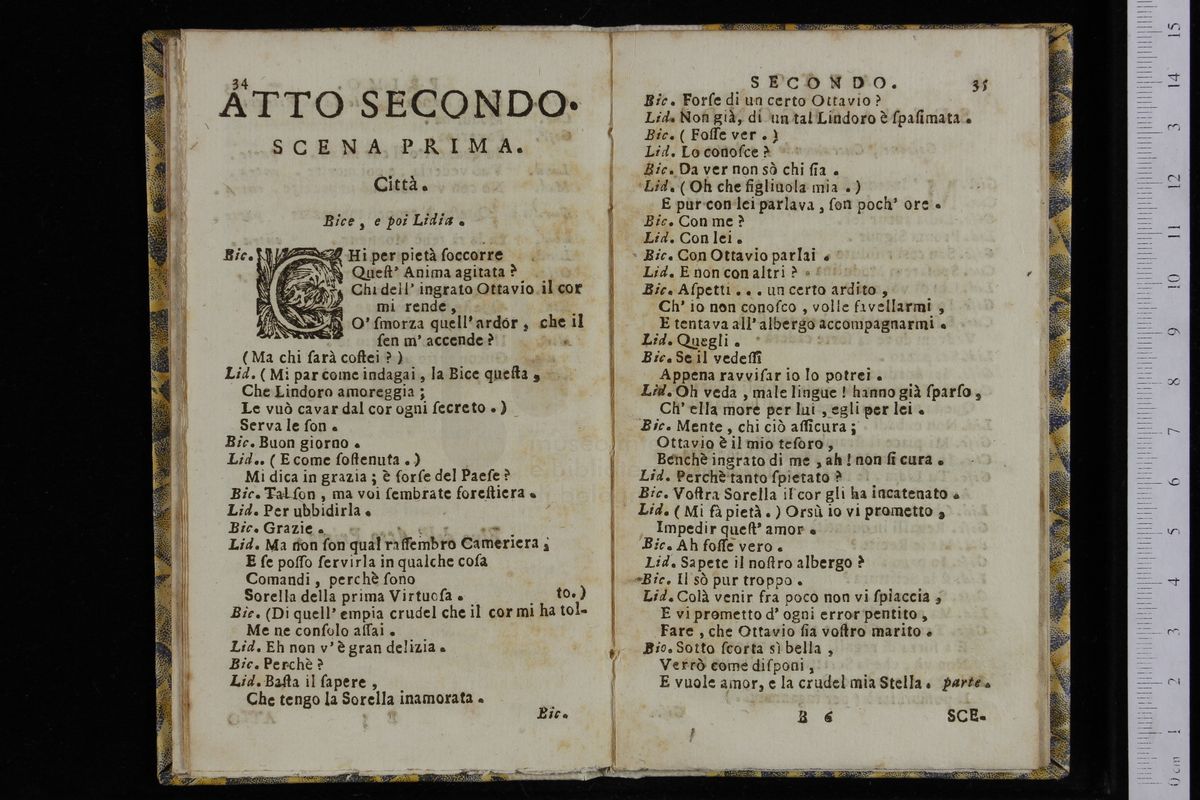 34
ATTO SECONDO.
SCENA PRIMA.
Città.
Bice, e poi Lidia.
Bic. CHi per pietà ſoccorre
Queſt' Anima agitata?
Chi dell' ingrato Ottavio il cor
mi rende,
O' ſmorza quell' ardor, che il
ſen m' accende?
(Ma chi ſarà coſtei?)
Lid. (Mi par come indagai, la Bice queſta,
Che Lindoro amoreggia;
Le vuò cavar dal cor ogni ſecreto.)
Serva le ſon.
Bic. Buon giorno.
Lid.. (E come ſoſtenuta.)
Mi dica in grazia; è forſe del Paeſe?
Bic. Tal ſon, ma voi ſembrate foreſtiera.
Lid. Per ubbidirla.
Bic. Grazie.
Lid. Ma non ſon qual raſſembro Cameriera;
E ſe poſſo ſervirla in qualche coſa
Comandi, perchè ſono
Sorella della prima Virtuoſa. to.)
Bic. (Di quell' empia crudel che il cor mi ha tol-
Me ne conſolo aſſai.
Lid. Eh non v' è gran delizia.
Bic. Perchè?
Lid. Baſta il ſapere,
Che tengo la Sorella inamorata.
Bic.
SECONDO. 35
Bic. Forſe di un certo Ottavio?
Lid. Non già, di un tal Lindoro è ſpaſimata.
Bic. (Foſſe ver.)
Lid. Lo conoſce?
Bic. Da ver non sò chi ſia.
Lid. (Oh che figliuola mia.)
E pur con lei parlava, ſon poch' ore.
Bic. Con me?
Lid. Con lei.
Bic. Con Ottavio parlai.
Lid. E non con altri?
Bic. Aſpetti... un certo ardito,
Ch' io non conoſco, volle favellarmi,
E tentava all' albergo accompagnarmi.
Lid. Quegli.
Bic. Se il vedeſſi
Appena ravviſar io lo potrei.
Lid. Oh veda, male lingue! hanno già ſparſo,
Ch' ella more per lui, egli per lei.
Bic. Mente, chi ciò aſſicura;
Ottavio è il mio teſoro,
Benchè ingrato di me, ah! non ſi cura.
Lid. Perchè tanto ſpietato?
Bic. Voſtra Sorella il cor gli ha incatenato.
Lid. (Mi fà pietà.) Orsù io vi prometto,
Impedir queſt' amor.
Bic. Ah foſſe vero.
Lid. Sapete il noſtro albergo?
Bic. Il sò pur troppo.
Lid. Colà venir fra poco non vi ſpiaccia,
E vi prometto d' ogni error pentito,
Fare, che Ottavio ſia voſtro marito.
Bic. Sotto ſcorta sì bella,
Verrò come diſponi,
E vuole amor, e la crudel mia Stella. parte.
B 6 SCE-
15
14
13
12
11
10
9
8
7
6
5
4
3
2
1
0 cm